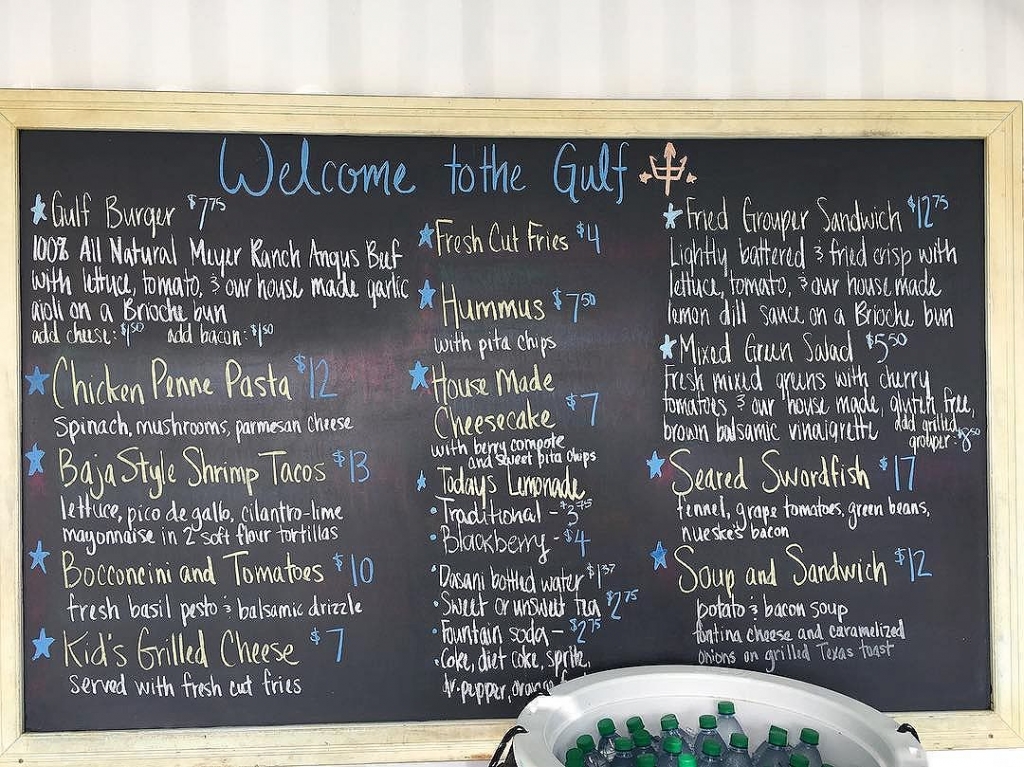 Welcome to the Gulf
Gulf Burger $7.75
100% All Natural Meyer Ranch Angus Beef
with lettuce, tomato, & our house made garlic
aioli on a Brioche bun
add cheese: $1.50 add bacon: $1.50
Chicken Penne Pasta $12
Spinach, mushrooms, parmesan cheese
Baja Style Shrimp Tacos $13
lettuce, pico de gallo, cilantro-lime
mayonnaise in 2 soft flour tortillas
Bocconcini and Tomatoes $10
fresh basil pesto & balsamic drizzle
Kid's Grilled Cheese $7
served with fresh cut fries
Fresh Cut Fries $4
Hummus $7.50
with pita chips
House Made
Cheesecake $7
with berry compote
and sweet pita chips
Today's Lemonade
Traditional - $3.75
Blackberry - $4
Dasani bottled water $1.37
Sweet or unsweet tea $2.75
Fountain soda - $2.75
Coke, diet coke, sprite,
dr. pepper, orange
Fried Grouper Sandwich $12.75
Lightly battered & fried crisp with
lettuce, tomato, & our house made
lemon dill sauce on a Brioche bun
Mixed Green Salad $5.50
Fresh mixed greens with cherry
tomatoes & our house made, gluten free,
brown balsamic vinaigrette add grilled
grouper: $8.50
Seared Swordfish $17
fennel, grape tomatoes, green beans,
nueske's bacon
Soup and Sandwich $12
potato & bacon soup
fontina cheese and caramelized
onions on grilled Texas toast